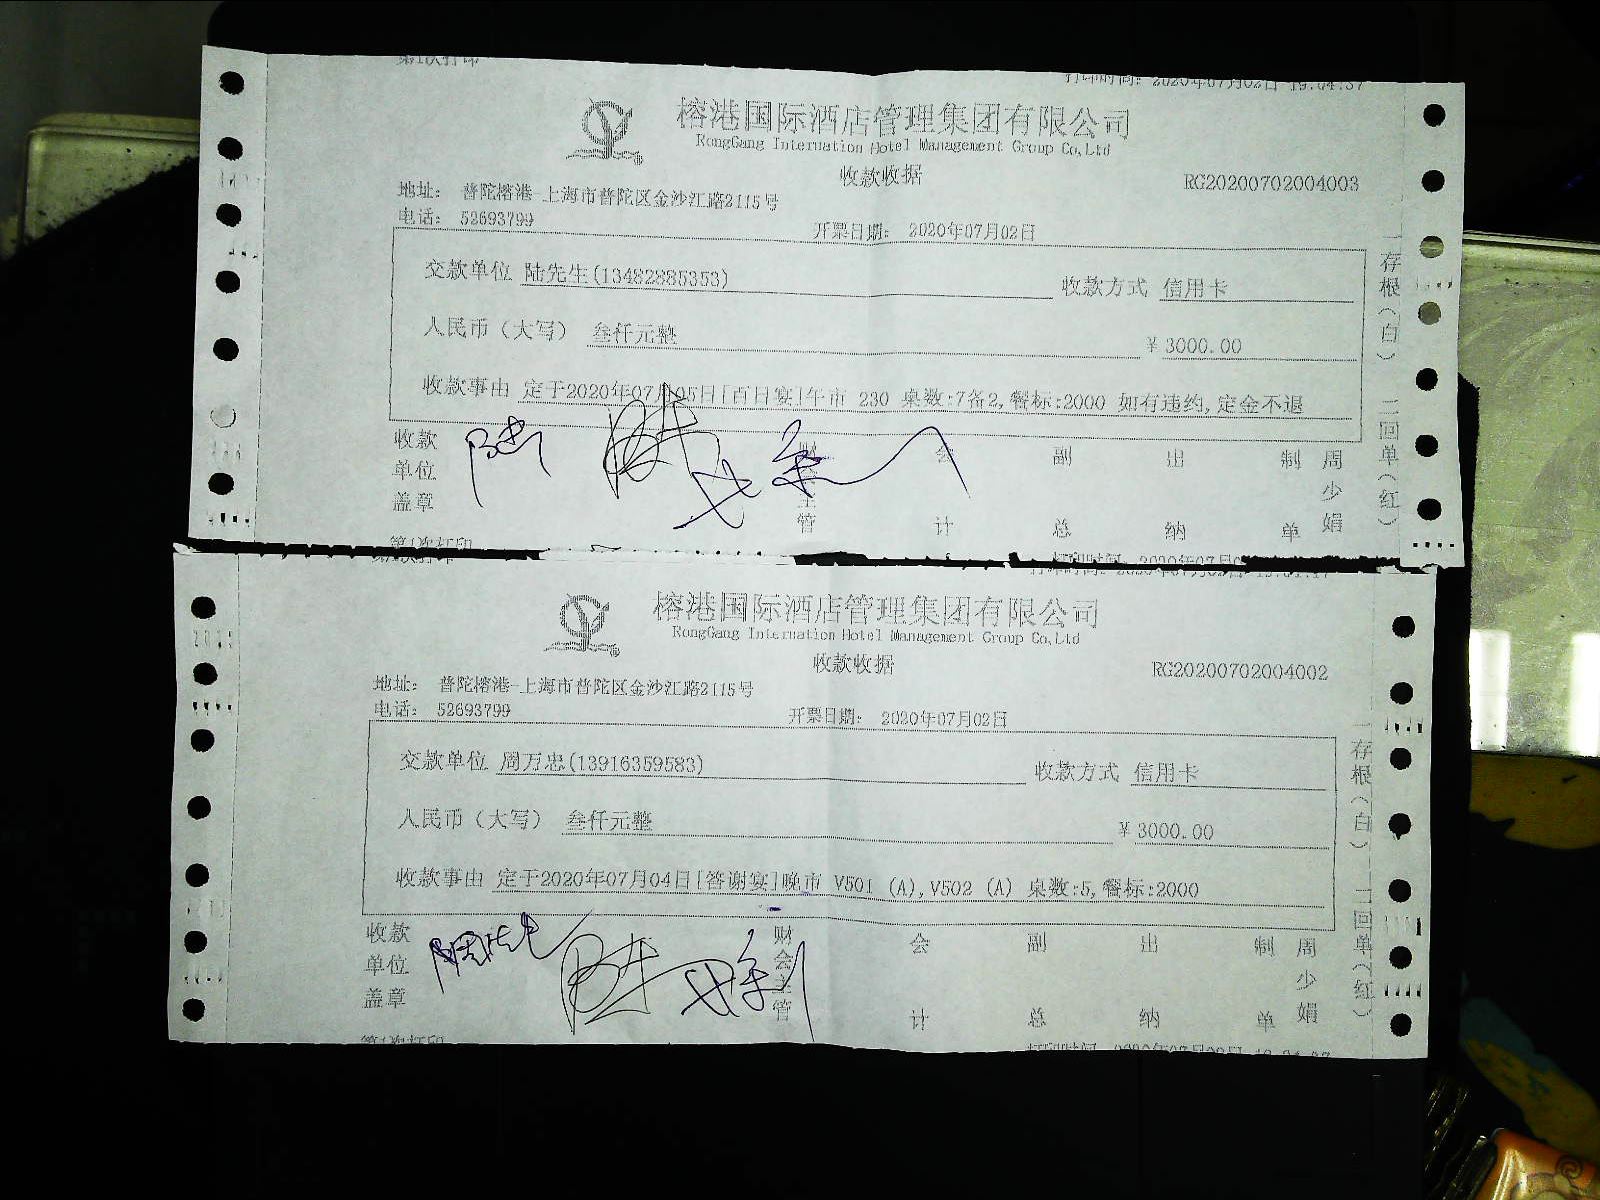 第1次打印
打印时间：2020年07月02日 19:04:37
榕港国际酒店管理集团有限公司
RongGang Internation Hotel Management Group Co,Ltd
收款收据
RG20200702004003
地址： 普陀榕港-上海市普陀区金沙江路2115号
电话： 52693799
开票日期： 2020年07月02日
交款单位 陆先生(13482885353) 收款方式 信用卡
人民币（大写） 叁仟元整 ¥ 3000.00
收款事由 定于2020年07月05日[百日宴]午市 230 桌数:7备2,餐标:2000 如有违约,定金不退
收款单位盖章 财会主管 会计 副总 出纳 制单 周少娟
存根（白） 二回单（红）
第1次打印
榕港国际酒店管理集团有限公司
RongGang Internation Hotel Management Group Co,Ltd
收款收据
RG20200702004002
地址： 普陀榕港-上海市普陀区金沙江路2115号
电话： 52693799
开票日期： 2020年07月02日
交款单位 周万忠(13916359583) 收款方式 信用卡
人民币（大写） 叁仟元整 ¥ 3000.00
收款事由 定于2020年07月04日[答谢宴]晚市 V501 (A),V502 (A) 桌数:5,餐标:2000
收款单位盖章 财会主管 会计 副总 出纳 制单 周少娟
存根（白） 二回单（红）